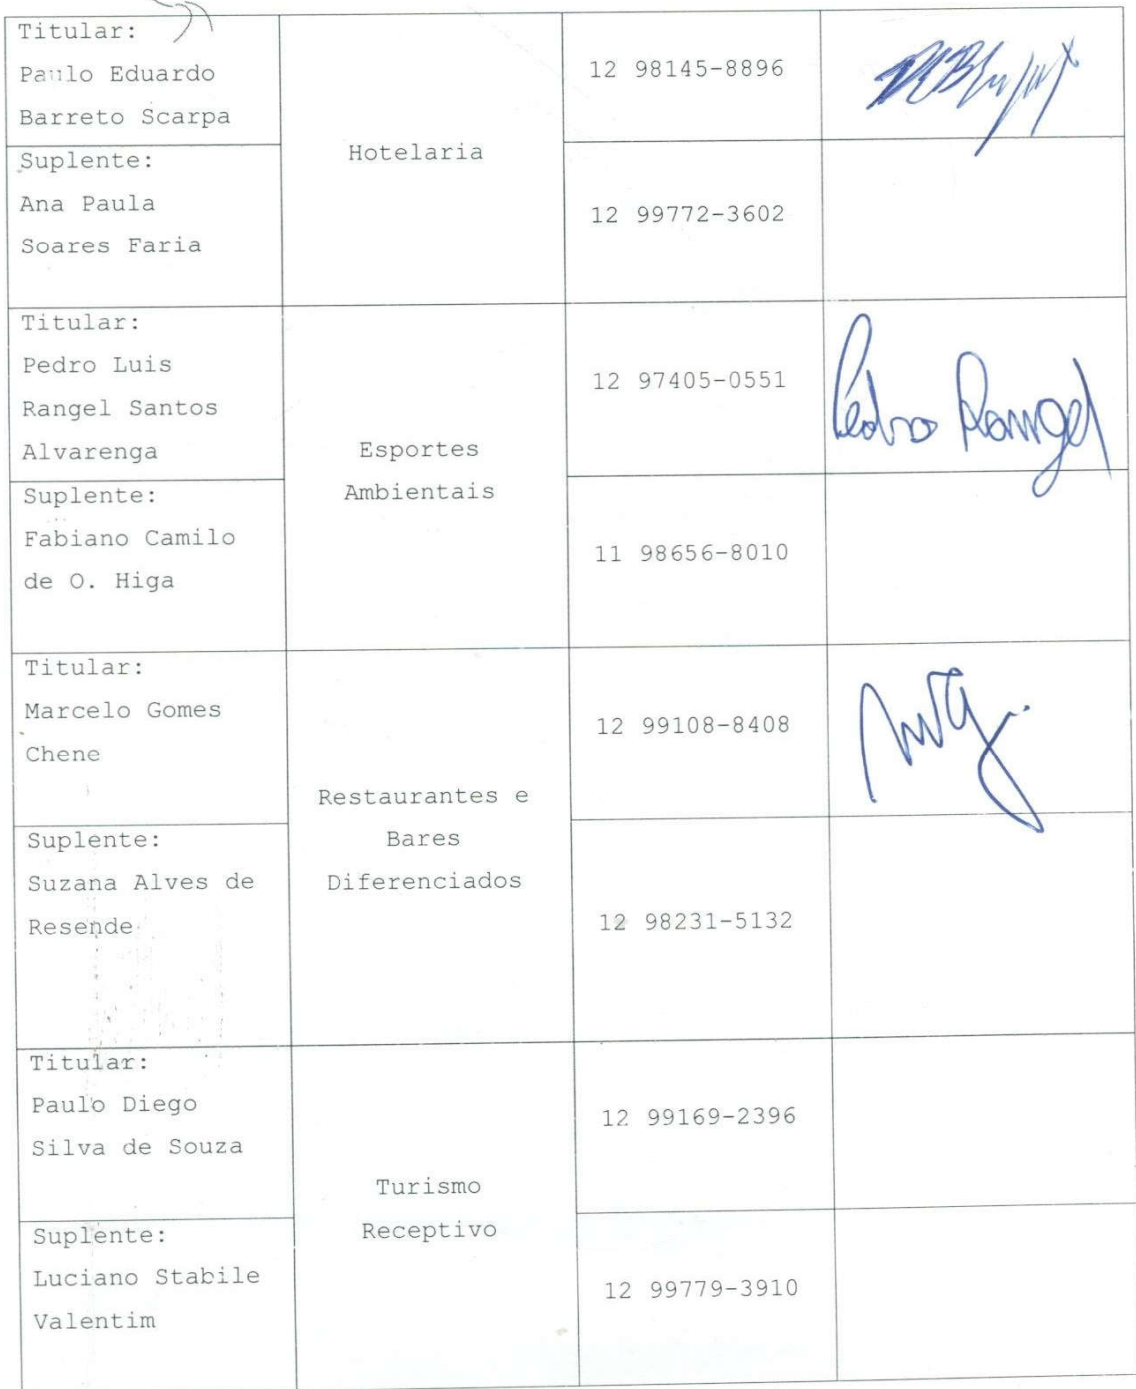 Titular:
Paulo Eduardo
Barreto Scarpa
Hotelaria
12 98145-8896
Suplente:
Ana Paula
Soares Faria
12 99772-3602
Titular:
Pedro Luis
Rangel Santos
Alvarenga
Esportes
Ambientais
12 97405-0551
Pedro Rangel
Suplente:
Fabiano Camilo
de O. Higa
11 98656-8010
Titular:
Marcelo Gomes
Chene
Restaurantes e
Bares
Diferenciados
12 99108-8408
Suplente:
Suzana Alves de
Resende
12 98231-5132
Titular:
Paulo Diego
Silva de Souza
Turismo
Receptivo
12 99169-2396
Suplente:
Luciano Stabile
Valentim
12 99779-3910